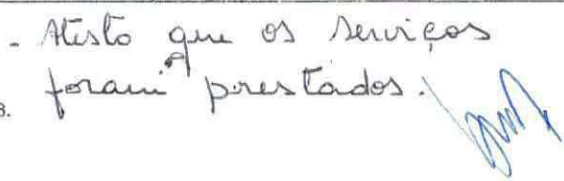 - Atesto que os serviços
foram prestados.
3.